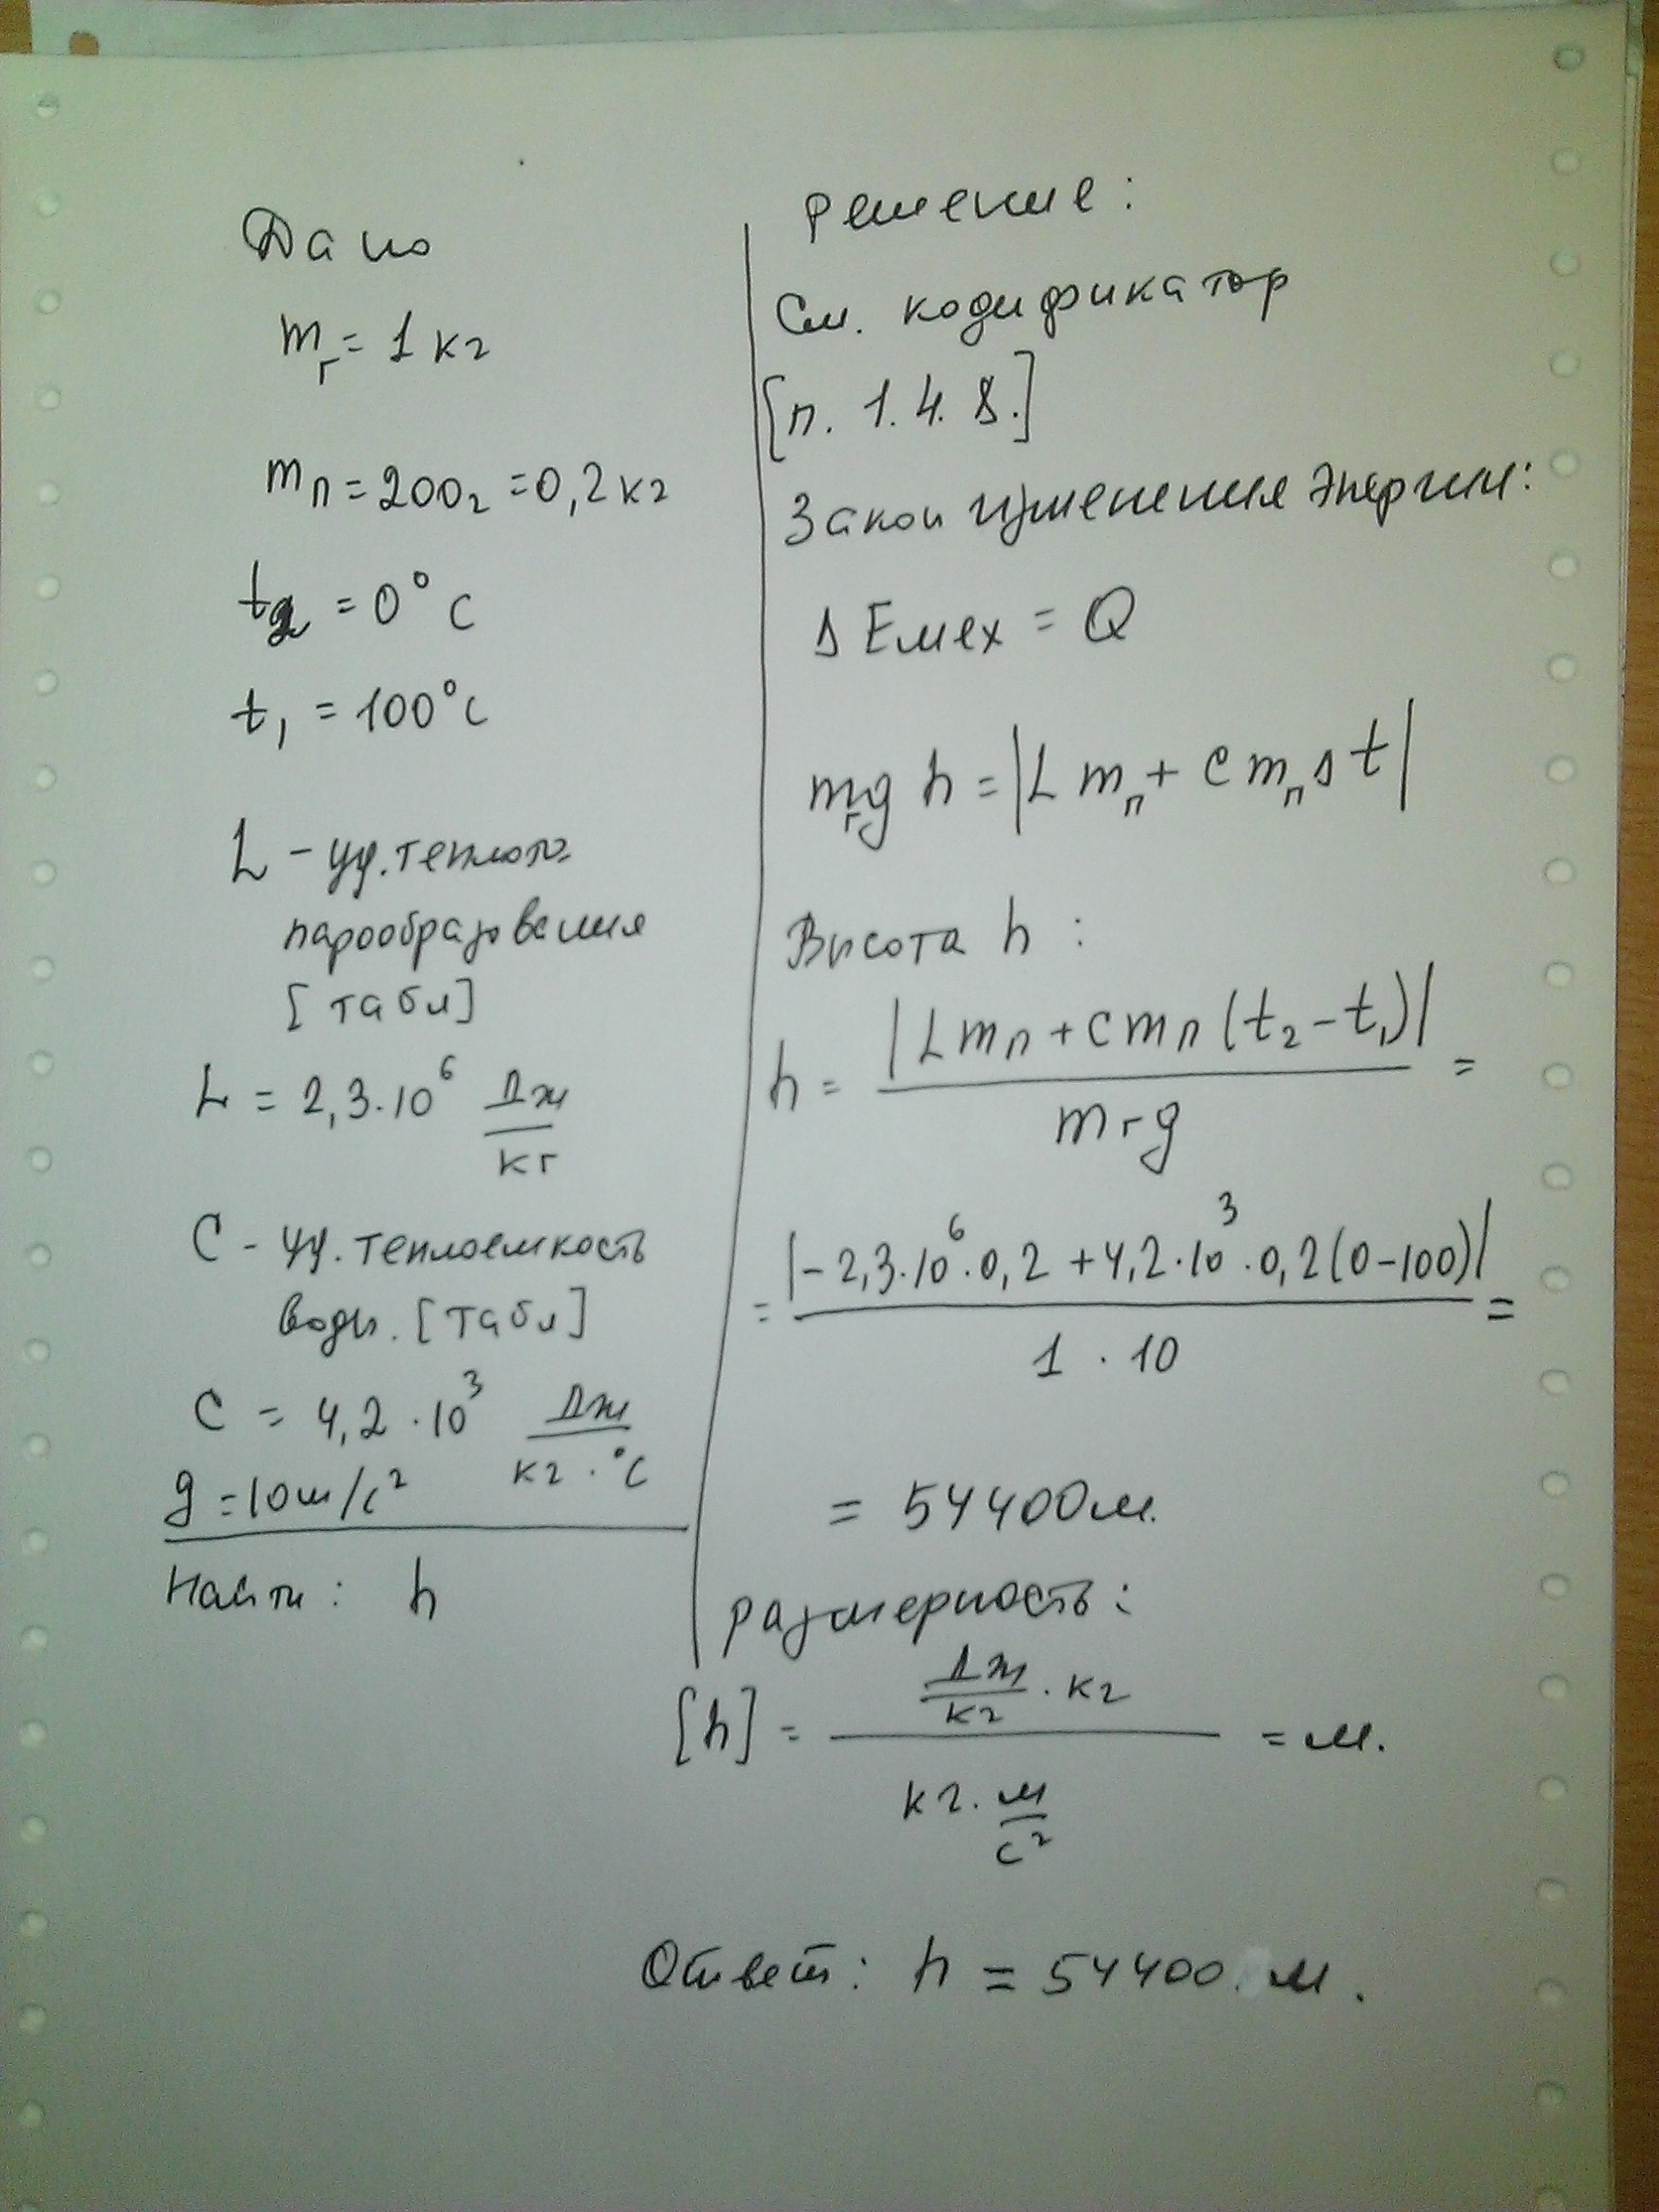 Дано
m_г = 1 кг
m_п = 200г = 0,2 кг
t_2 = 0° C
t_1 = 100° C
L - уд. теплота
парообразования
[табл]
L = 2,3·10^6 Дж/кг
C - уд. теплоемкость
воды. [табл]
C = 4,2·10^3 Дж/кг·°C
g = 10 м/с^2
Найти: h
Решение:
См. кодификатор
[п. 1.4.8.]
Закон изменения энергии:
Δ Eмех = Q
m_г g h = |L m_п + c m_п Δt|
Высота h :
h = |L m_п + c m_п (t_2 - t_1)| / m_г g =
= |-2,3·10^6·0,2 + 4,2·10^3·0,2(0-100)| / 1·10 =
= 54400 м.
Размерность:
[h] = Дж/кг · кг / кг · м/с^2 = м.
Ответ: h = 54400 м.